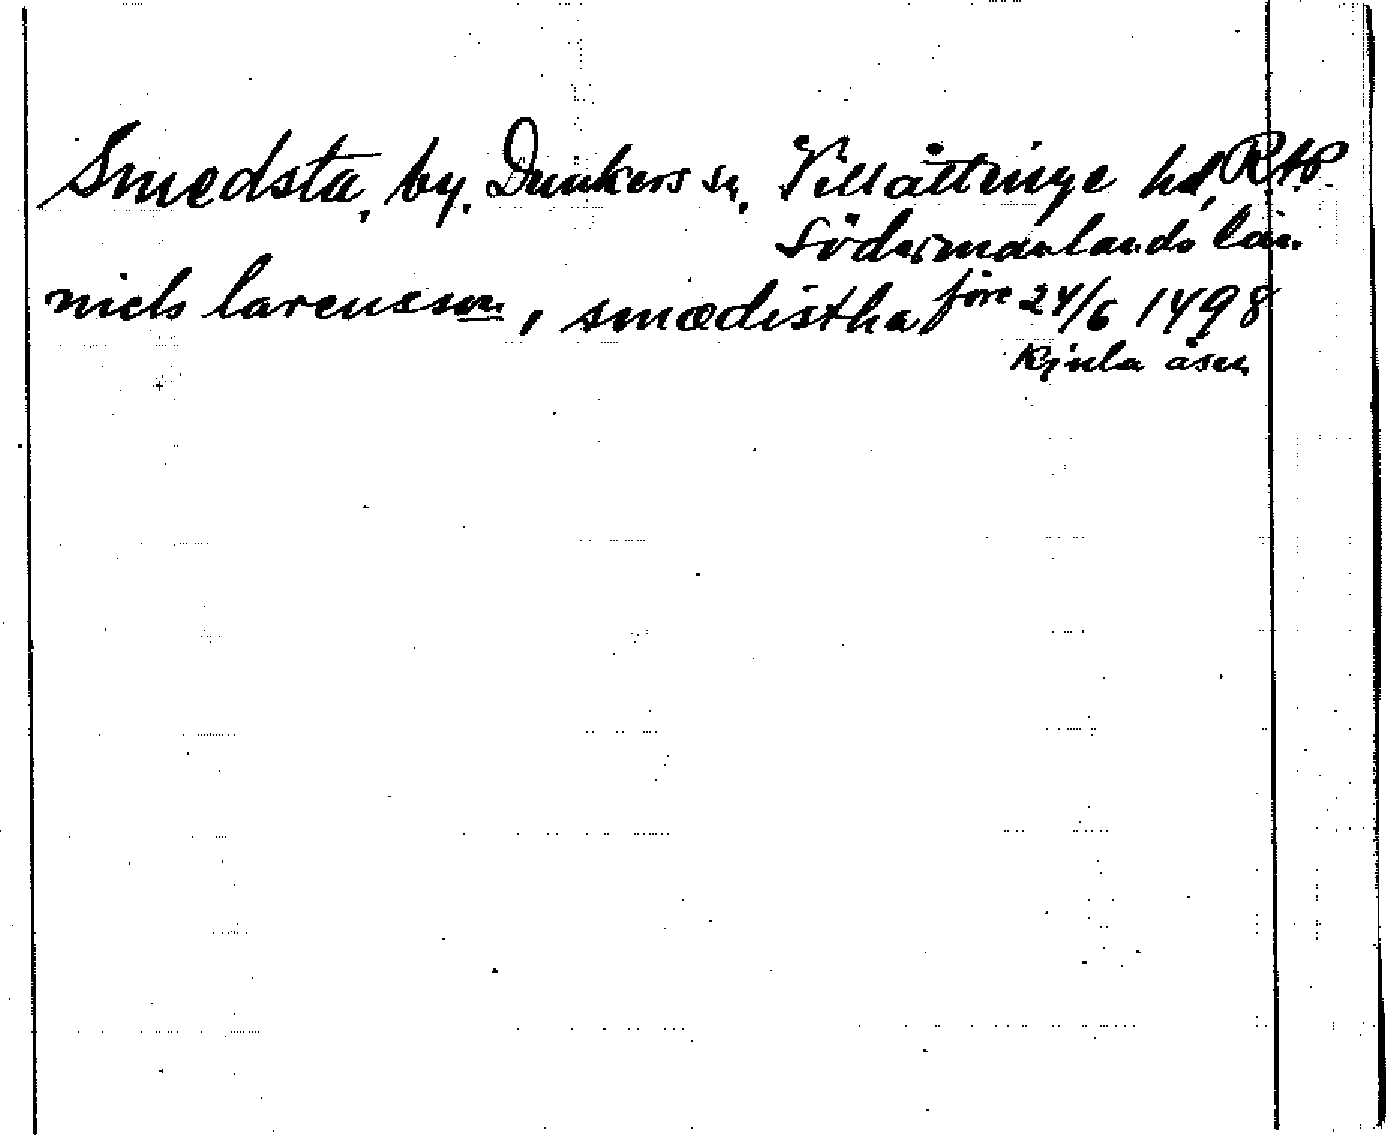 Smedsta, by, Dunkers sn, Villåttinge hd, RAP
Södermanlands län.
niels larensson, smædistha före 24/6 1498
Kjula åsen